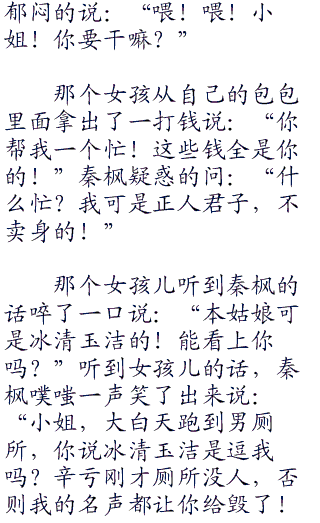 郁闷的说：“喂！喂！小
姐！你要干嘛？”
那个女孩从自己的包包
里面拿出了一打钱说：“你
帮我一个忙！这些钱全是你
的！”秦枫疑惑的问：“什
么忙？我可是正人君子，不
卖身的！”
那个女孩儿听到秦枫的
话啐了一口说：“本姑娘可
是冰清玉洁的！能看上你
吗？”听到女孩儿的话，秦
枫噗嗤一声笑了出来说：
“小姐，大白天跑到男厕
所，你说冰清玉洁是逗我
吗？辛亏刚才厕所没人，否
则我的名声都让你给毁了！